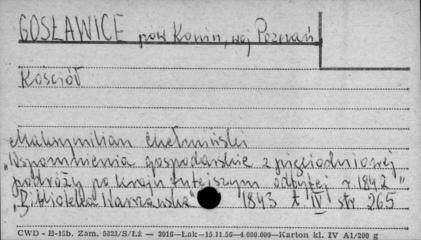 GOSŁAWICE pow Konin, woj Poznań
Kościół
Maksymilian Chełmiński
"Wspomnienia gospodarskie z pięciodniowej
podróży po kraju tutejszym odbytej r. 1842"
"Biblioteka Warszawska" 1843 t IV str 265
CWD - B-15b. Zam. 5623/S/Łż — 3016—Łok—15.11.56—4.000.000—Karton kl. IV A1/200 g